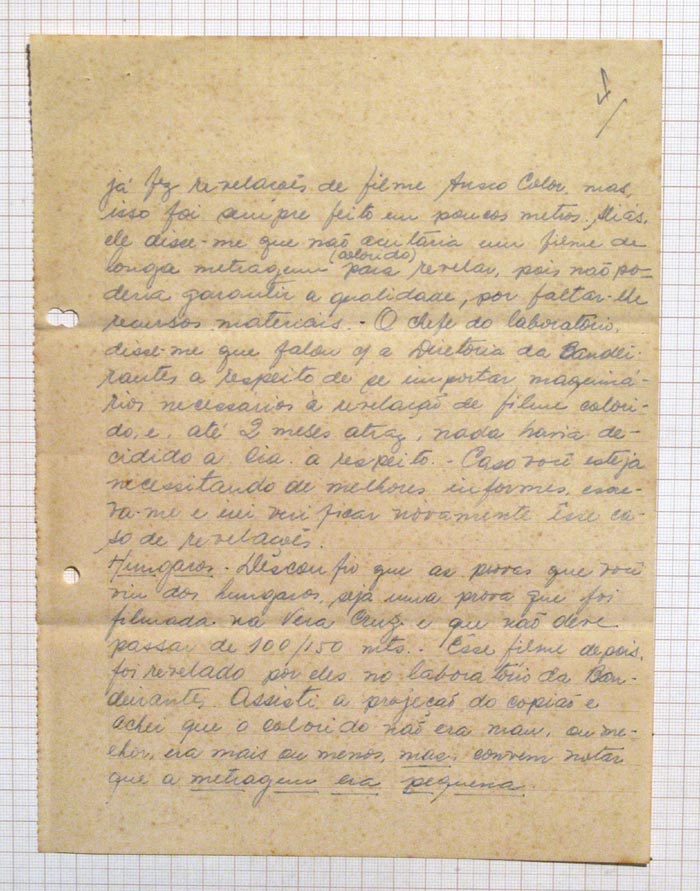 já fez revelações de filme Ansco Color, mas,
isso foi sempre feito em poucos metros. Aliás,
ele disse-me que não aceitaria um filme de
longa metragem (colorido) para revelar, pois não po-
deria garantir a qualidade, por faltar-lhe
recursos materiais. - O chefe do laboratório,
disse-me que falou c/ a Diretoria da Bandei-
rantes a respeito de se importar maquiná-
rios necessários à revelação de filme colori-
do, e, até 2 meses atraz, nada havia de-
cidido a Cia. a respeito. - Caso você esteja
necessitando de melhores informes, escre-
va-me e irei verificar novamente êsse ca-
so de revelações.
Hungaros - Desconfio que as provas que você
viu dos hungaros, seja uma prova que foi
filmada na Vera Cruz e que não deve
passar de 100/150 mts. - Esse filme depois,
foi revelado por eles no laboratório da Ban-
deirantes. Assisti a projeção do copião e
achei que o colorido não era mau, ou me-
lhor, era mais ou menos, mas, convem notar
que a metragem era pequena.